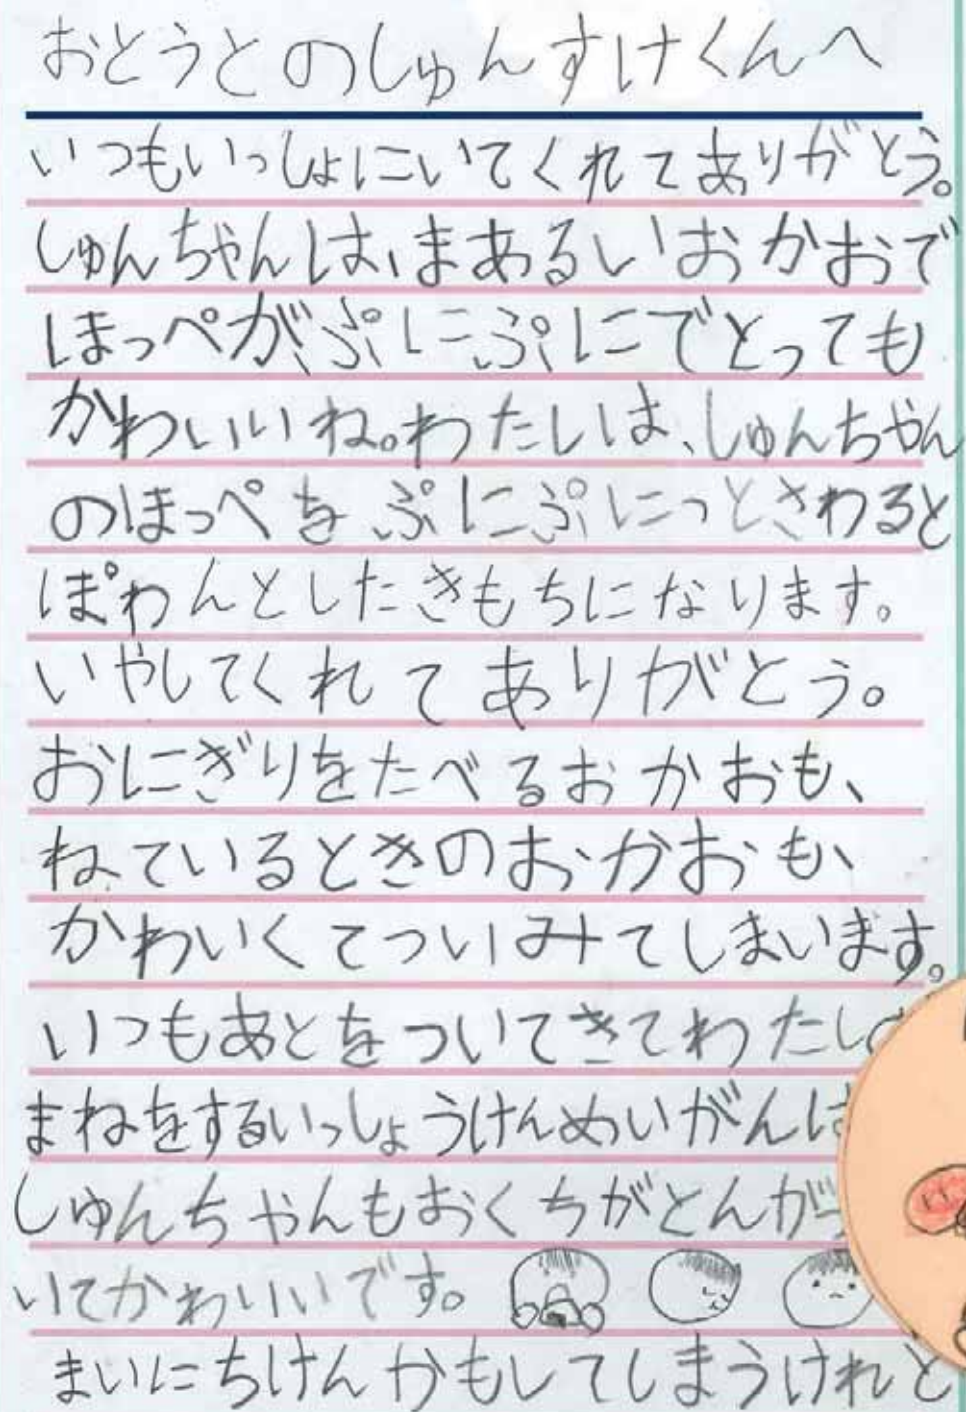 おとうとのしゅんすけくんへ
いつもいっしょにいてくれてありがとう。
しゅんちゃんは、まあるいおかおで
ほっぺが、ぷにぷにでとっても
かわいいね。わたしは、しゅんちゃん
のほっぺをぷにぷにっとさわると
ぽわんとしたきもちになります。
いやしてくれてありがとう。
おにぎりをたべるおかおも、
ねているときのおかおも、
かわいくてついみてしまいます。
いつもあとをついてきてわたし
まねをするいっしょうけんめいがん
しゅんちゃんもおくちがとんが
いてかわいいです。
まいにちけんかもしてしまうけれど